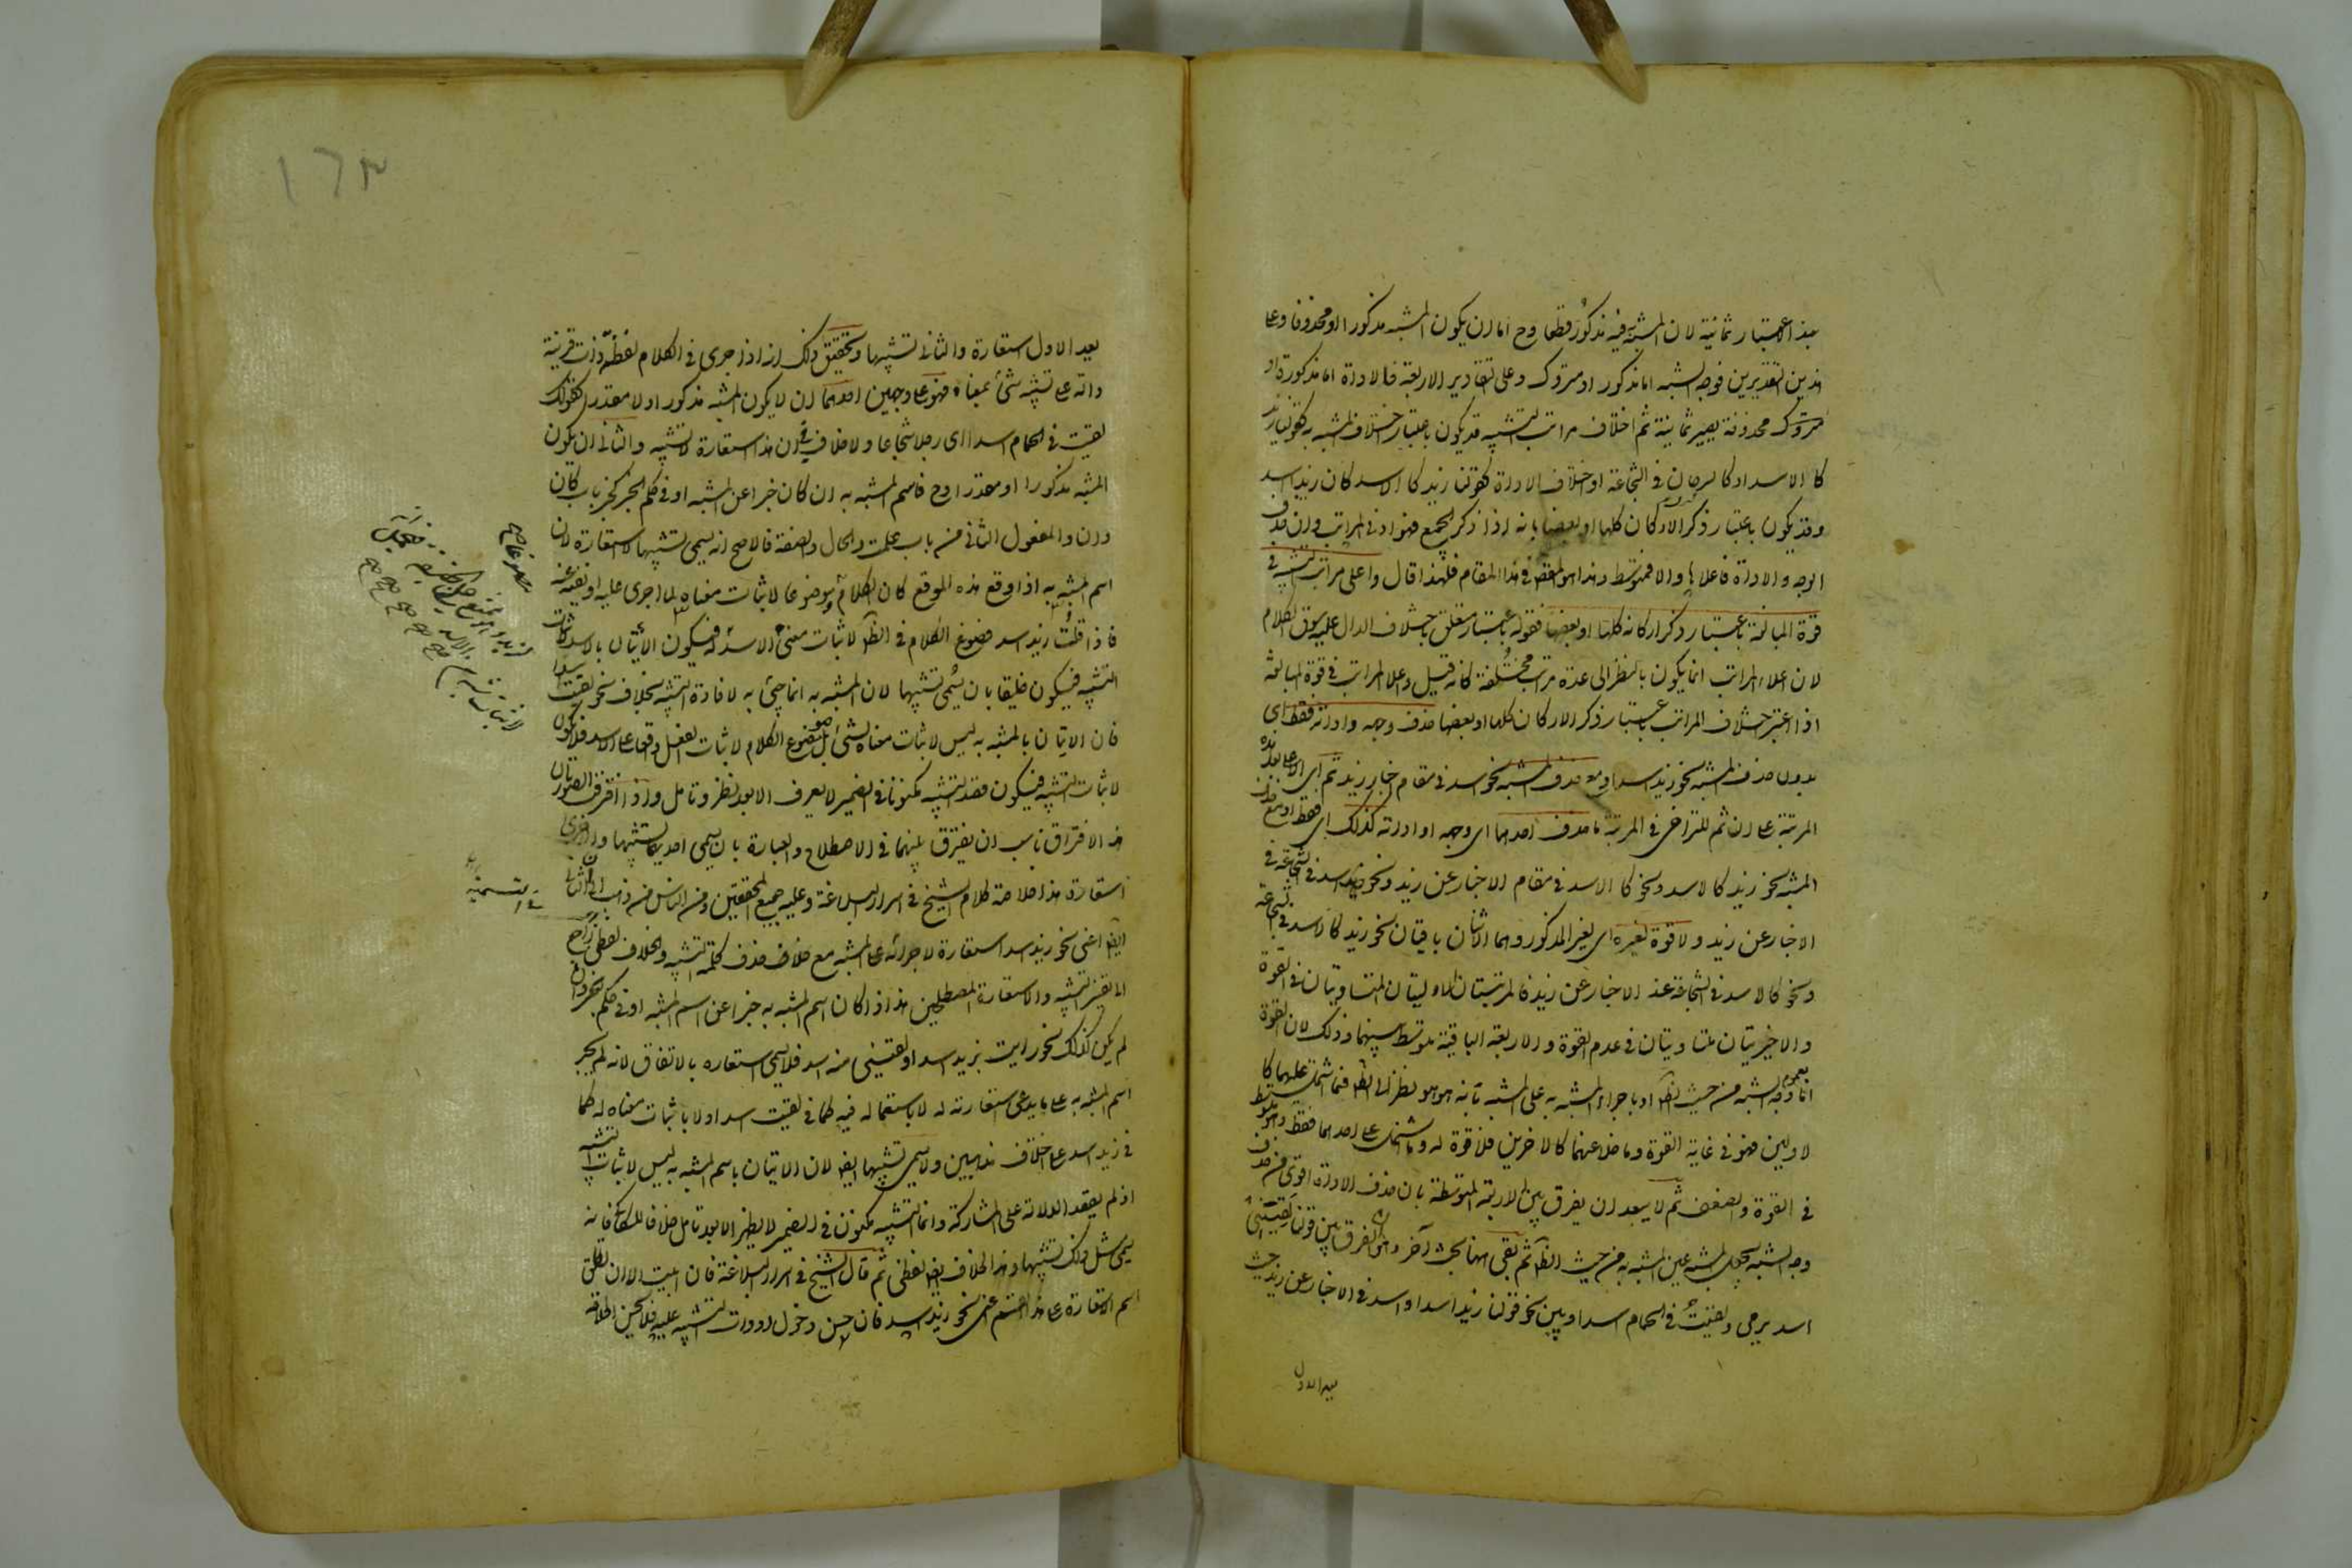 بهذا الاعتبار ثمانية لان المشبه به فيه مذكور قطعا وح اما ان يكون المشبه مذكورا او محذوفا وعلى
هذين التقديرين فوجه الشبه اما مذكور او متروك وعلى التقادير الاربعة فالاداة اما مذكورة او
متروكة محذوفة يصير ثمانية ثم اختلاف مراتب التشبيه قد يكون باعتبار اختلاف المشبه به كقولنا زيد
كالاسد او كالسرحان في الشجاعة او اختلاف الاداة كقولنا زيد كالاسد كان زيد اسد
وقد يكون باعتبار ذكر الاركان كلها او بعضها بانه اذا ذكر الجميع فهو ادنى المراتب وان حذف
الوجه والاداة فاعلاها والا فمتوسط وهذا هو المقص في هذا المقام فلهذا قال واعلى مراتب التشبيه في
قوة المبالغة باعتبار ذكر اركانه كلها او بعضها فقوله باعتبار متعلق باختلاف الدال عليه سوق الكلام
لان اعلا المراتب انما يكون بالنظر الى عدة مراتب مختلفة كانه قيل واعلا المراتب في قوة المبالغة
اذا اعتبر اختلاف المراتب باعتبار ذكر الاركان كلها او بعضها حذف وجهه واداته فقط اى
بدون حذف المشبه نحو زيد اسد او مع حذف المشبه نحو اسد في مقام اخبار زيد ثم اى الاعلى بعد هذه
المرتبة على ان ثم للتراخى في المرتبة ما حذف احدهما اى وجهه او اداته كذلك اى فقط او مع حذف
المشبه نحو زيد كالاسد ونحو كالاسد في مقام الاخبار عن زيد ونحو زيد اسد في الشجاعة في
الاخبار عن زيد ولا قوة لغيره اى لغير المذكور وهما الاثنان باقيان نحو زيد كالاسد في الشجاعة
ونحو كالاسد في الشجاعة عند الاخبار عن زيد فالمرتبتان الاوليتان المتساويتان في القوة
والاخيريتان متساويتان في عدم القوة والاربعة الباقية متوسط بينهما وذلك لان القوة
اما بعموم وجه الشبه من حيث الظ او باجراء المشبه به على المشبه بانه هو هو نظرا الى الظ فما اشتمل عليهما كا
لاولين فهو في غاية القوة وما خلا عنهما كالاخرين فلا قوة له وما اشتمل على احدهما فقط فهو متوسط
في القوة والضعف ثم لا يبعد ان يفرق بين الاربعة المتوسطة بان حذف الاداة اقوى من حذف
وجه الشبه بجعل المشبه عين المشبه به من حيث الظ ثم بقى ههنا بحث آخر وهو الفرق بين قولنا لقيتنى
اسد يرمى ولقيت في الحمام اسدا وبين نحو قولنا زيد اسد او اسد في الاخبار عن زيد حيث
يعد الاول
١٦٣
يعد الاول استعارة والثانى تشبيها وتحقيق ذلك انه اذا جرى في الكلام لفظة ذات قرينة
دالة على تشبيه شئ بمعناه فهو على وجهين احدهما ان لا يكون المشبه مذكورا ولا مقدرا كقولك
لقيت في الحمام اسدا اى رجلا شجاعا ولا خلاف في ان هذا استعارة لا تشبيه والثانى ان يكون
المشبه مذكورا او مقدرا وح فاسم المشبه به ان كان خبرا عن المشبه او في حكم الخبر كخبر باب كان
وان والمفعول الثانى من باب علمت والحال والصفة فالاصح انه يسمى تشبيها لا استعارة لان
اسم المشبه به اذا وقع هذه الموقع كان الكلام موضوعا لاثبات معناه لما اجرى عليه او نفيه عنه
فاذا قلت زيد اسد فصوغ الكلام في الظ لاثبات معنى الاسد له فيكون الاتيان بالاسد لاثبات
التشبيه فيكون خليقا بان يسمى تشبيها لان المشبه به انما جئ به لافادة التشبيه بخلاف نحو لقيت اسدا
فان الاتيان بالمشبه به ليس لاثبات معناه لشئ بل صوغ الكلام لاثبات الفعل واقعا على الاسد فلا يكون
لاثبات التشبيه فيكون قصد التشبيه مكنونا في الضمير لا يعرف الا بعد نظر وتامل واذا افترقت الصورتان
هذا الافتراق ناسب ان يفترق بينهما في الاصطلاح والعبارة بان يسمى احديهما تشبيها والاخرى
استعارة هذا خلاصة كلام الشيخ في اسرار البلاغة وعليه جميع المحققين ومن الناس من ذهب الى ان الثانى
ايض اعنى نحو زيد اسد استعارة لاجرائه على المشبه مع خلاف حذف كلمة التشبيه والخلاف لفظى راجع
الى تفسير التشبيه والاستعارة المصطلحين هذا اذا كان اسم المشبه به خبرا عن اسم المشبه او في حكم الخبر وان
لم يكن كذلك نحو رايت بزيد اسدا ولقينى منه اسد فلا يسمى استعاره بالاتفاق لانه لم يجر
اسم المشبه به على ما يدعى استعارته له لا باستعماله فيه كما في لقيت اسدا ولا باثبات معناه له كما
في زيد اسد على اختلاف المذهبين ولا يسمى تشبيها ايض لان الاتيان باسم المشبه به ليس لاثبات التشبيه
اذ لم يقصد الدلالة على المشاركة وانما التشبيه مكنون في الضمير لا يظهر الا بعد تامل خلافا للسكاكى فانه
يسمى مثل ذلك تشبيها وهذا الخلاف ايض لفظى ثم قال الشيخ في اسرار البلاغة فان ابيت الا ان تطلق
اسم الاستعارة على هذا القسم اعنى نحو زيد اسد فان حسن دخول ادوات التشبيه عليه فلا يحسن اطلاقه
في التسمية